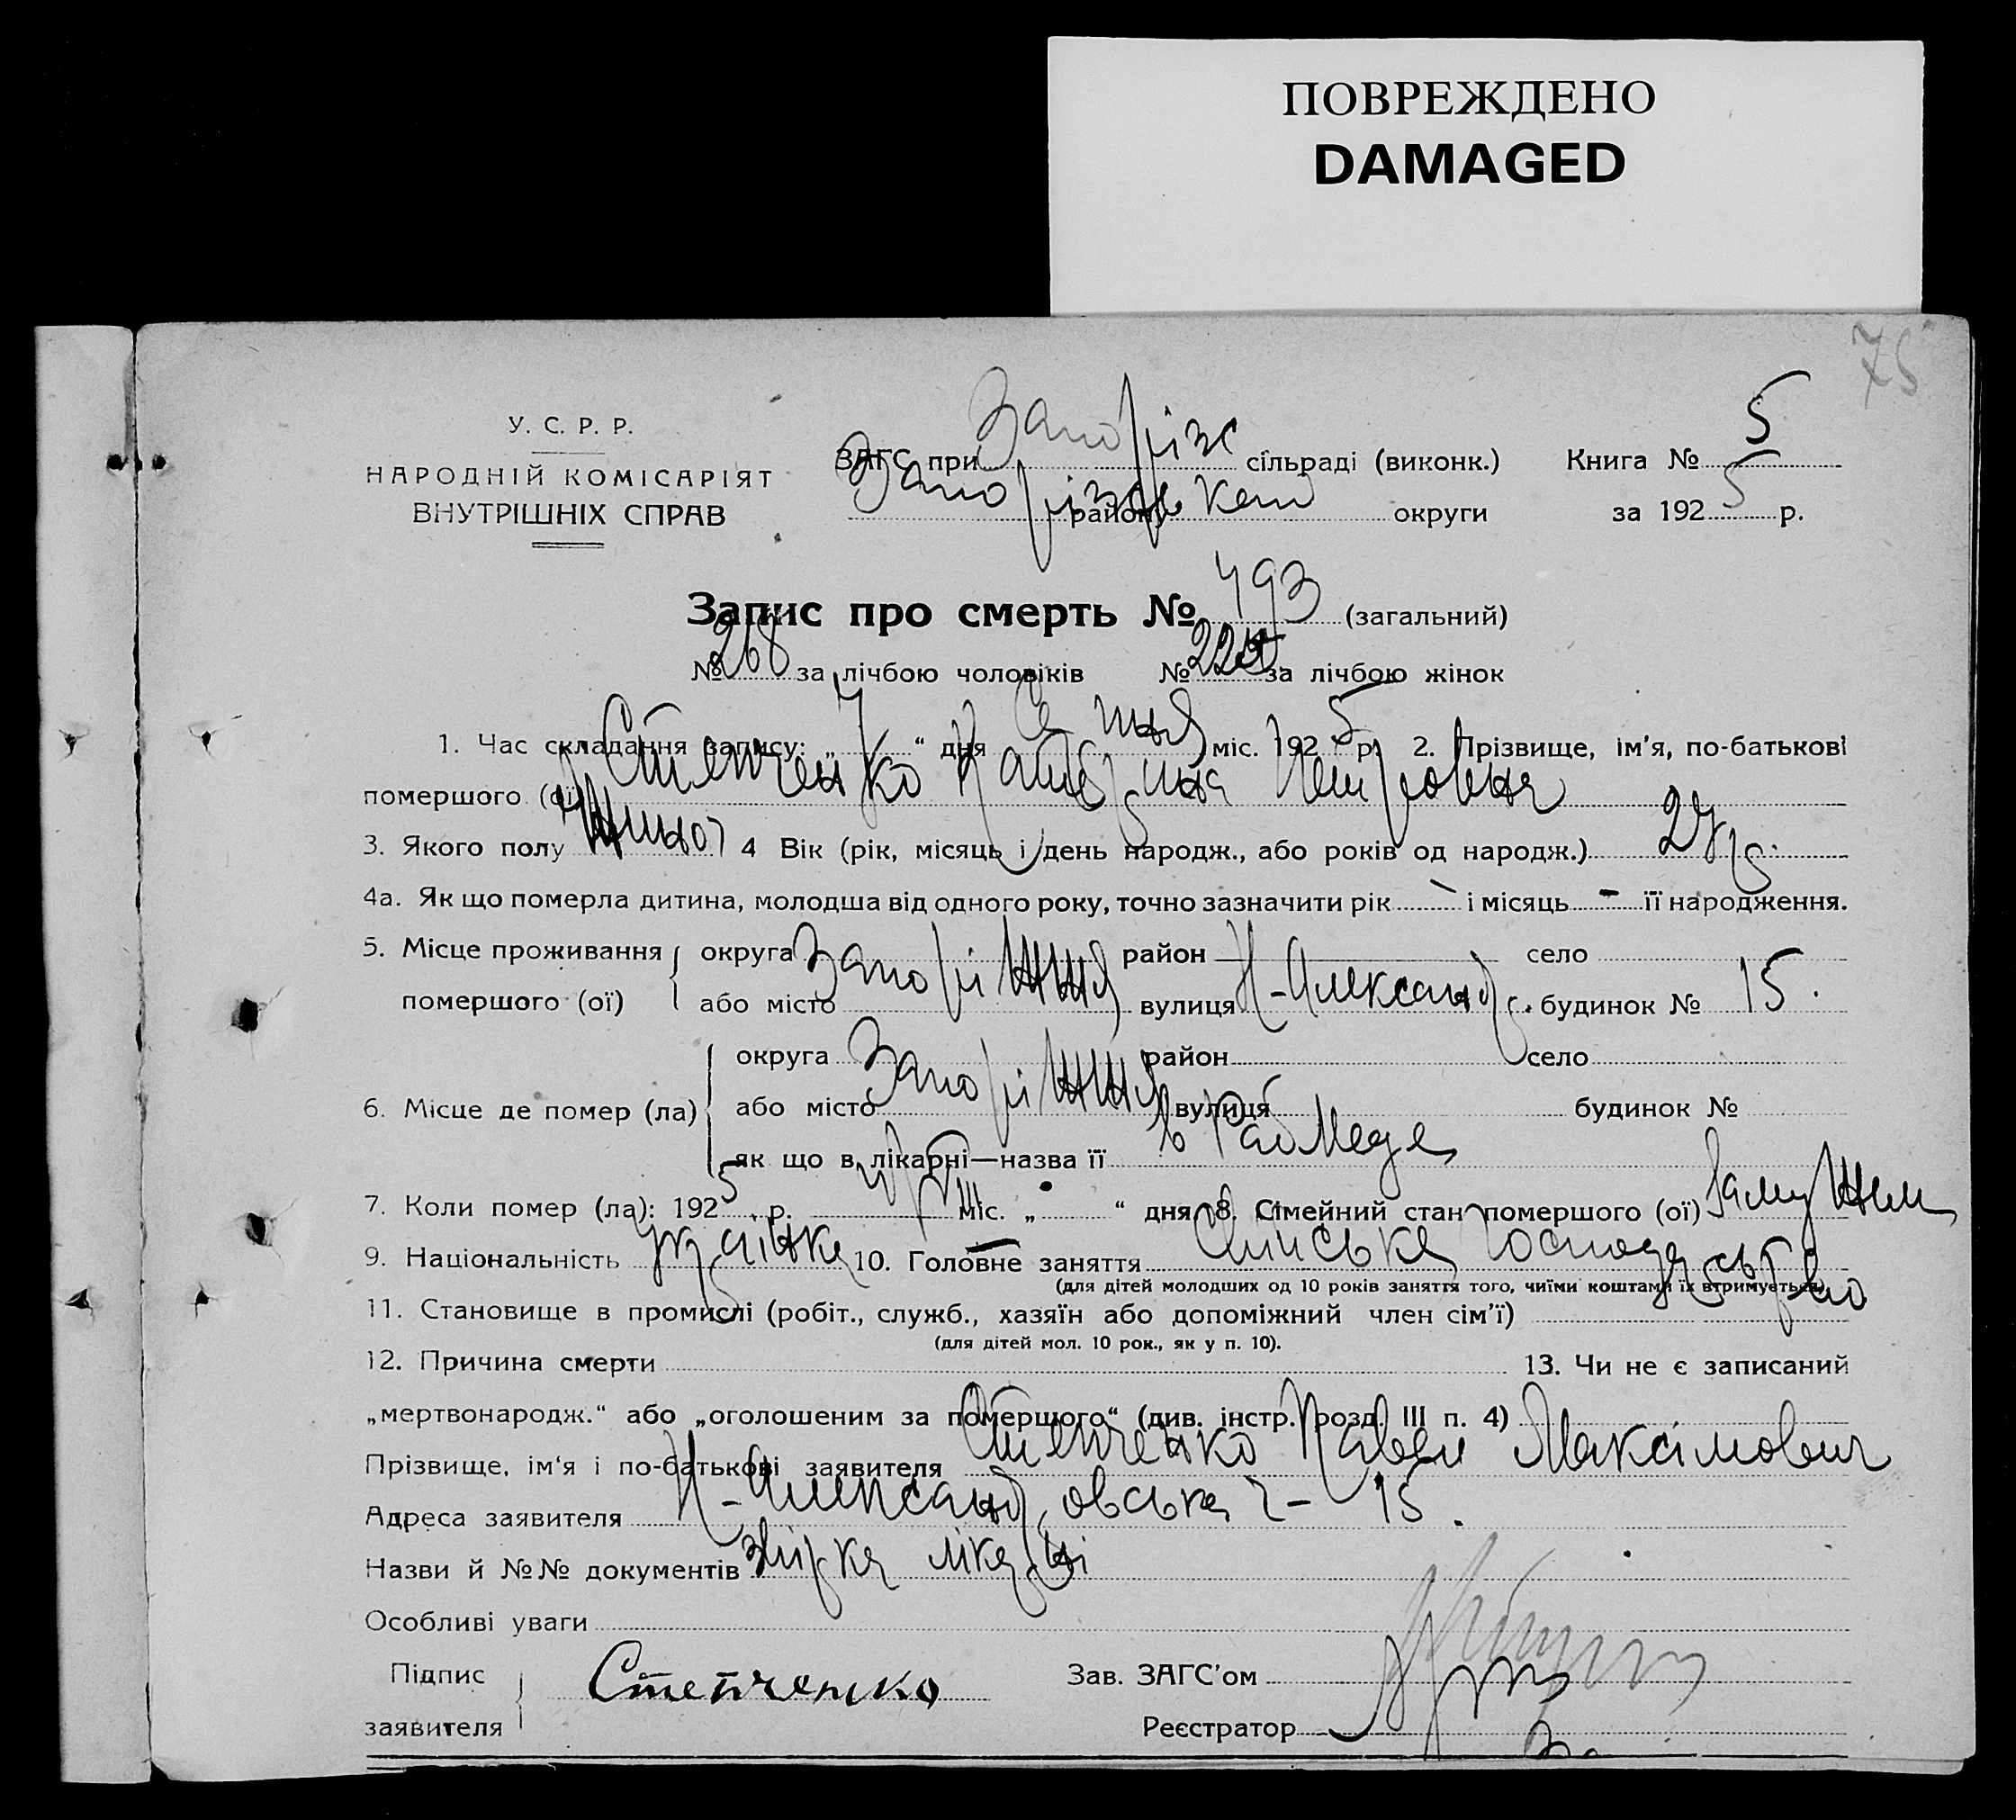 ПОВРЕЖДЕНО
DAMAGED
75
У. С. Р. Р.
НАРОДНІЙ КОМІСАРІЯТ
ВНУТРІШНІХ СПРАВ
ЗАГС при Запоріз сільраді (виконк.) Книга № 5
Запорізькой району округи за 1925 р.
Запис про смерть № 493 (загальний)
№ 268 за лічбою чоловіків № за лічбою жінок
1. Час складання запису: „ 7 “ дня міс. 1925 р. 2. Прізвище, ім'я, по-батькові
помершого (ої) Степченко Катерина Петровна
3. Якого полу 4 Вік (рік, місяць і день народж., або років од народж.) 27 р.
4а. Як що померла дитина, молодша від одного року, точно зазначити рік — і місяць — її народження.
5. Місце проживання округа район село
помершого (ої) або місто Запоріжжя вулиця Н-Александр. будинок № 15.
округа район село
6. Місце де помер (ла) або місто Запоріжжя вулиця будинок №
як що в лікарні—назва її
7. Коли помер (ла): 1925 р. міс. „ “ дня 8. Сімейний стан помершого (ої) Замужем
9. Національність Українка 10. Головне заняття господарство
(для дітей молодших од 10 років заняття того, чиїми коштами їх втримується)
11. Становище в промислі (робіт., служб., хазяїн або допоміжний член сім'ї)
(для дітей мол. 10 рок., як у п. 10).
12. Причина смерти 13. Чи не є записаний
„мертвонародж.“ або „оголошеним за помершого“ (див. інстр. розд. III п. 4)
Прізвище, ім'я і по-батькові заявителя Степченко Павел Максімович
Адреса заявителя Н-Александровська 15.
Назви й №№ документів лікарні
Особливі уваги
Підпис Степченко Зав. ЗАГС'ом
заявителя Реєстратор